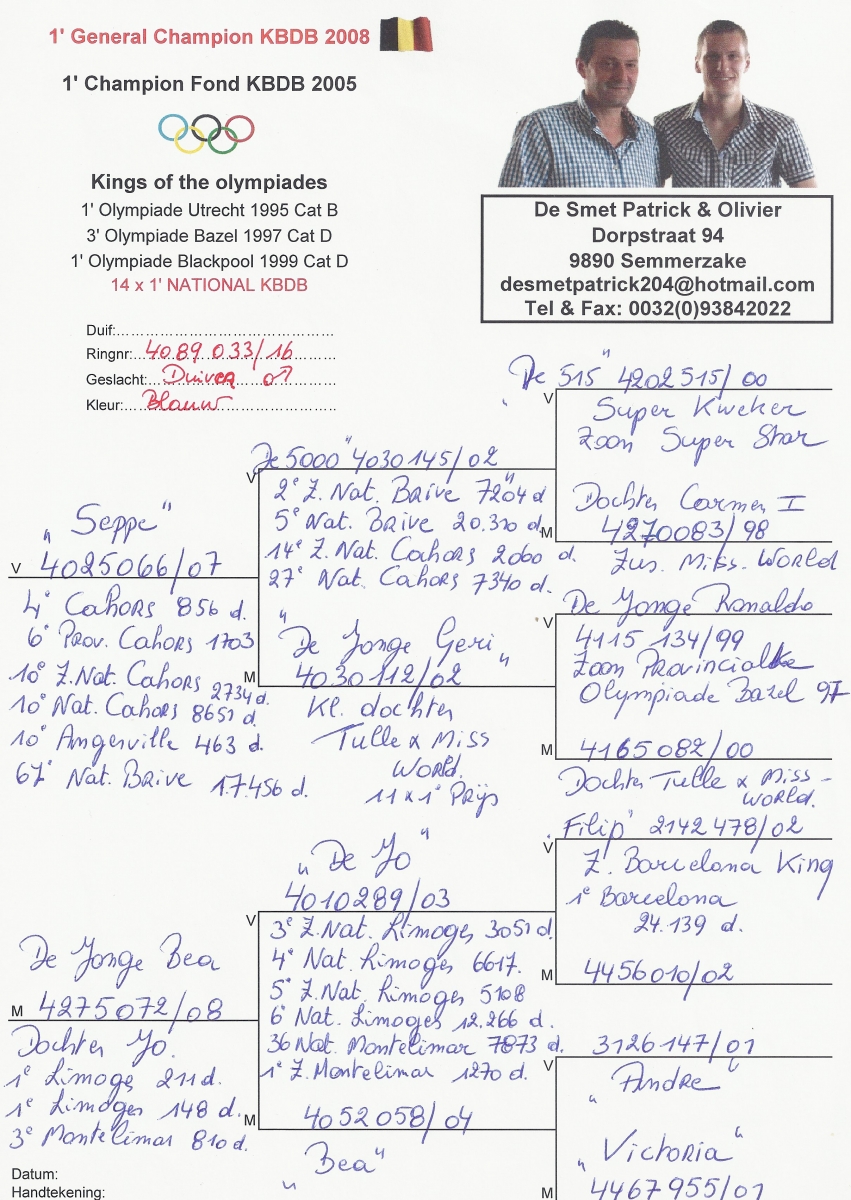 1' General Champion KBDB 2008
1' Champion Fond KBDB 2005
Kings of the olympiades
1' Olympiade Utrecht 1995 Cat B
3' Olympiade Bazel 1997 Cat D
1' Olympiade Blackpool 1999 Cat D
14 x 1' NATIONAL KBDB
De Smet Patrick & Olivier
Dorpstraat 94
9890 Semmerzake
desmetpatrick204@hotmail.com
Tel & Fax: 0032(0)93842022
Duif:
Ringnr: 4089 033/16
Geslacht: Duiver ♂
Kleur: Blauw
"Seppe"
V 4025066/07
4e Cahors 856 d.
6e Prov. Cahors 1703
10e Z.Nat. Cahors 2734 d.
10e Nat. Cahors 8651 d.
10e Angerville 463 d.
67e Nat. Brive 17.456 d.
De Jonge Bea
M 4275072/08
Dochter Jo.
1e Limoges 211 d.
1e Limoges 148 d.
3e Montelimar 810 d.
De 5000" 4030145/02
V
2e Z. Nat. Brive 7204 d
5e Nat. Brive 20.310 d
14e Z. Nat. Cahors 2060 d.
27e Nat. Cahors 7340 d.
"De Jonge Geri"
M 4030112/02
Kl. dochter
Tulle x Miss
World.
11 x 1e Prijs
"De Jo"
4010289/03
V
3e Z.Nat. Limoges 3051 d.
4e Nat. Limoges 6617.
5e Z.Nat. Limoges 5108
6e Nat. Limoges 12.266 d.
36 Nat. Montelimar 7873 d.
1e Z. Montelimar 1270 d.
M 4052058/04
"Bea"
De 515" 4202515/00
V
Super Kweker
Zoon Super Star
Dochter Carmen I
M 4270083/98
Zus. Miss. World
De Jonge Ronaldo
V
4115 134/99
Zoon Provinciale
Olympiade Bazel 97
M 4165082/00
Dochter Tulle x Miss-
World.
Filip" 2142478/02
V
Z. Barcelona King
1e Barcelona
24.139 d.
M 4456010/02
3126147/01
V
"Andre"
"Victoria"
M 4467955/01
Datum:
Handtekening: